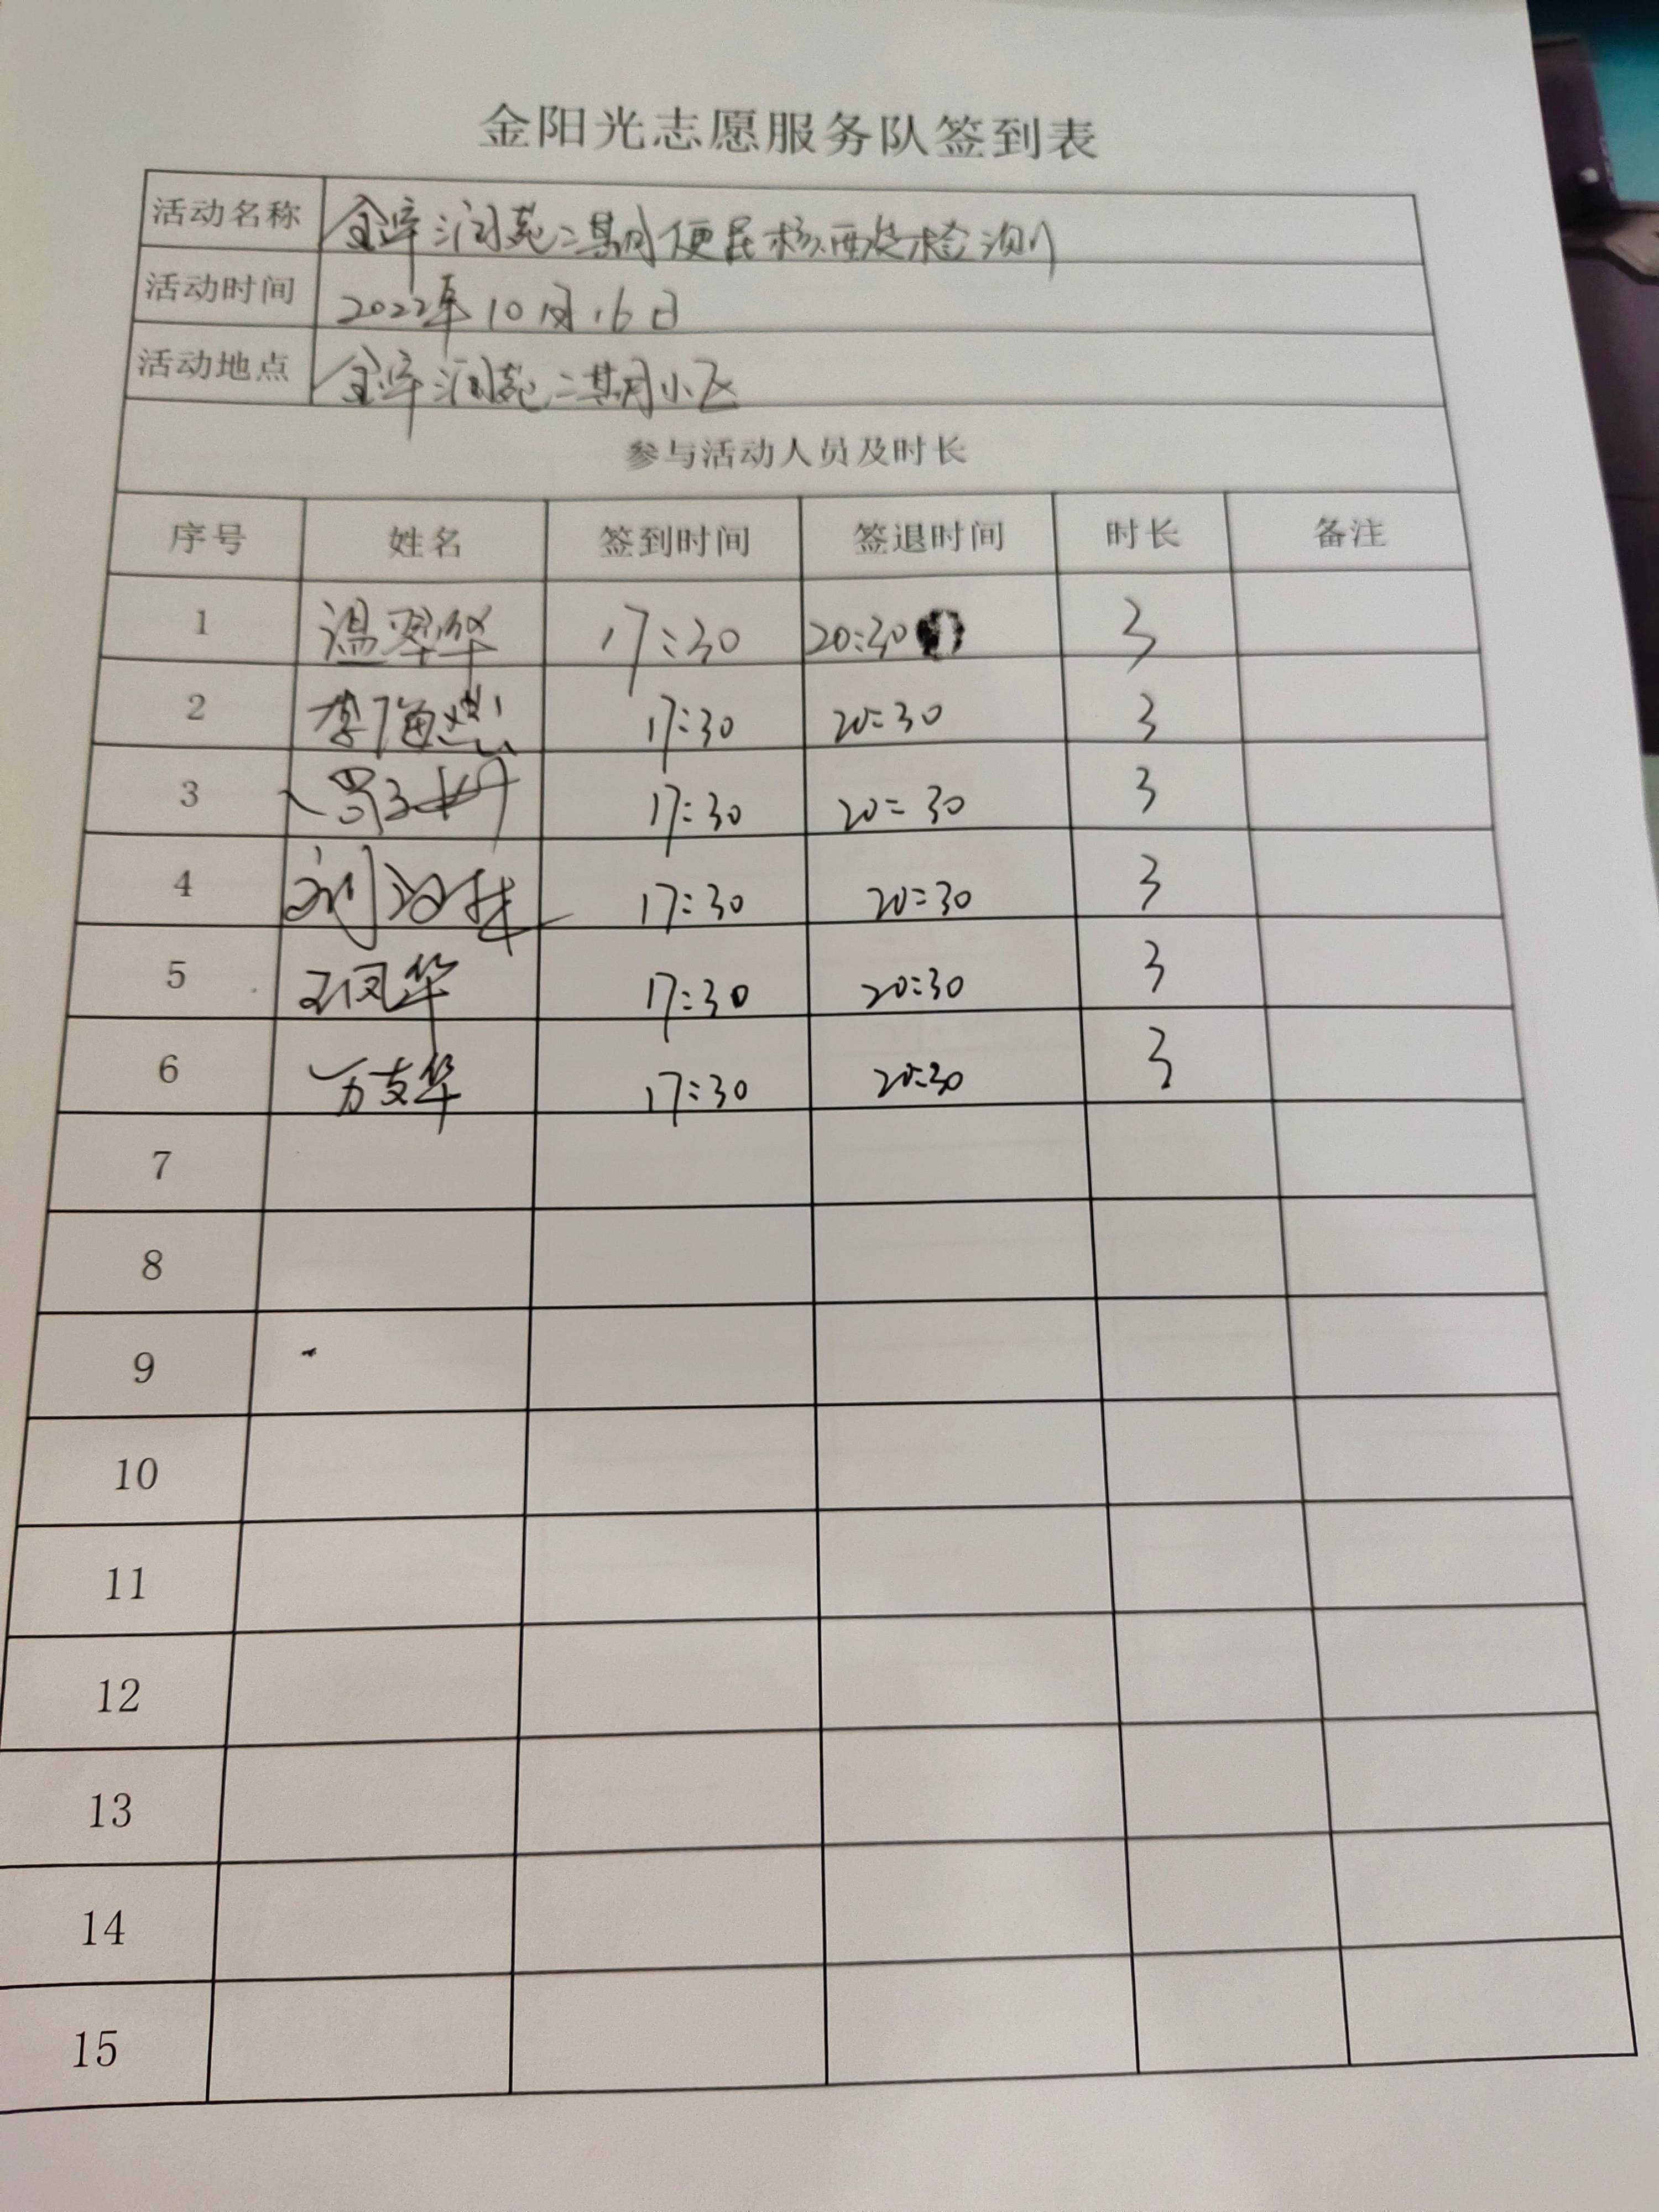 金阳光志愿服务队签到表
活动名称 润苑二期便民核酸检测
活动时间 2022年10月16日
活动地点 润苑二期小区
参与活动人员及时长
序号 姓名 签到时间 签退时间 时长 备注
1 温翠华 17:30 20:30 3
2 李海燕 17:30 20:30 3
3 17:30 20:30 3
4 刘 17:30 20:30 3
5 王凤华 17:30 20:30 3
6 万支华 17:30 20:30 3
7
8
9
10
11
12
13
14
15